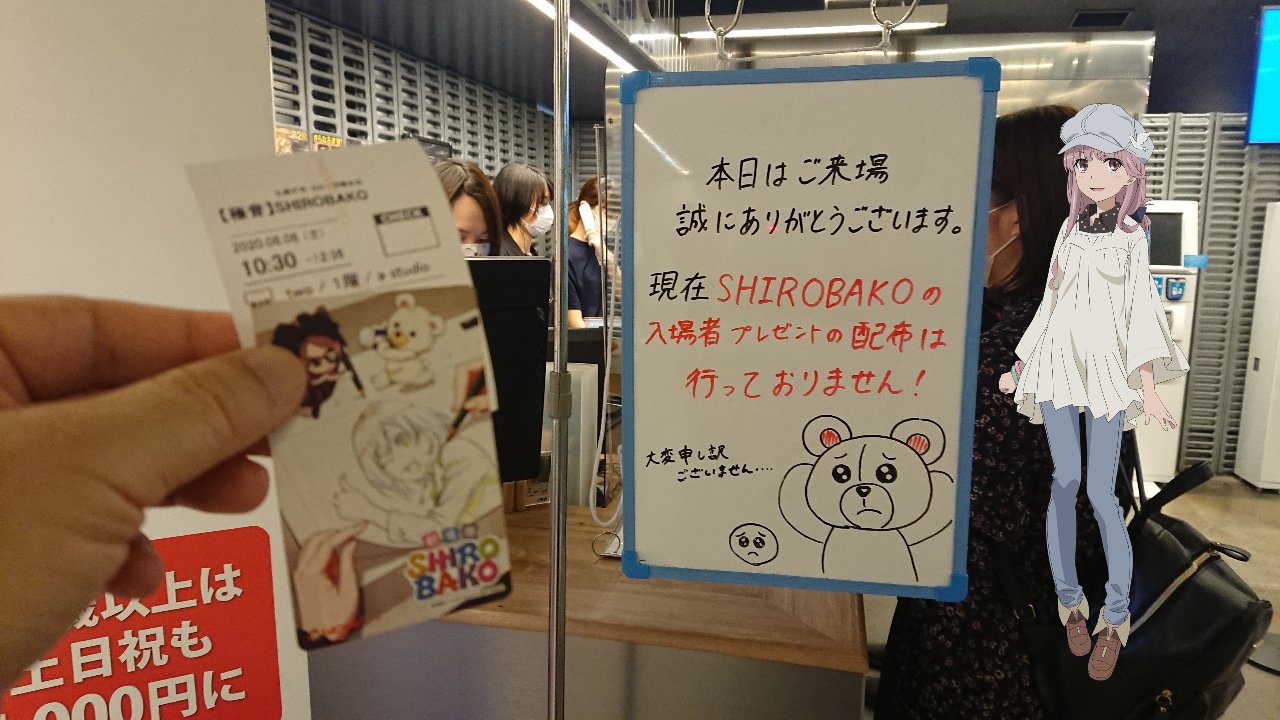 【極音】SHIROBAKO
CHECK
10:30
Two / 1階 / a studio
SHIRO
BAKO
本日はご来場
誠にありがとうございます。
現在 SHIROBAKOの
入場者プレゼントの配布は
行っておりません!
大変申し訳
ございません....
歳以上は
土日祝も
000円に